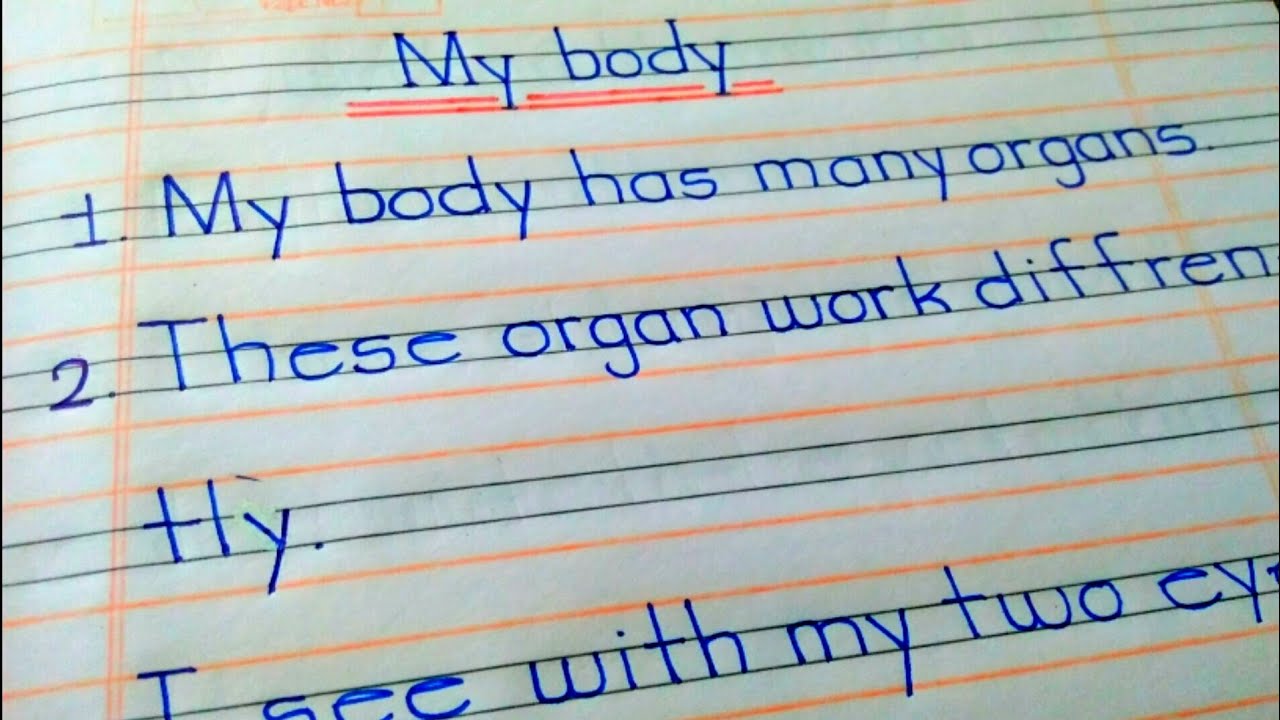 My body
1. My body has many organs.
2. These organ work diffren
tly.
I see with my two